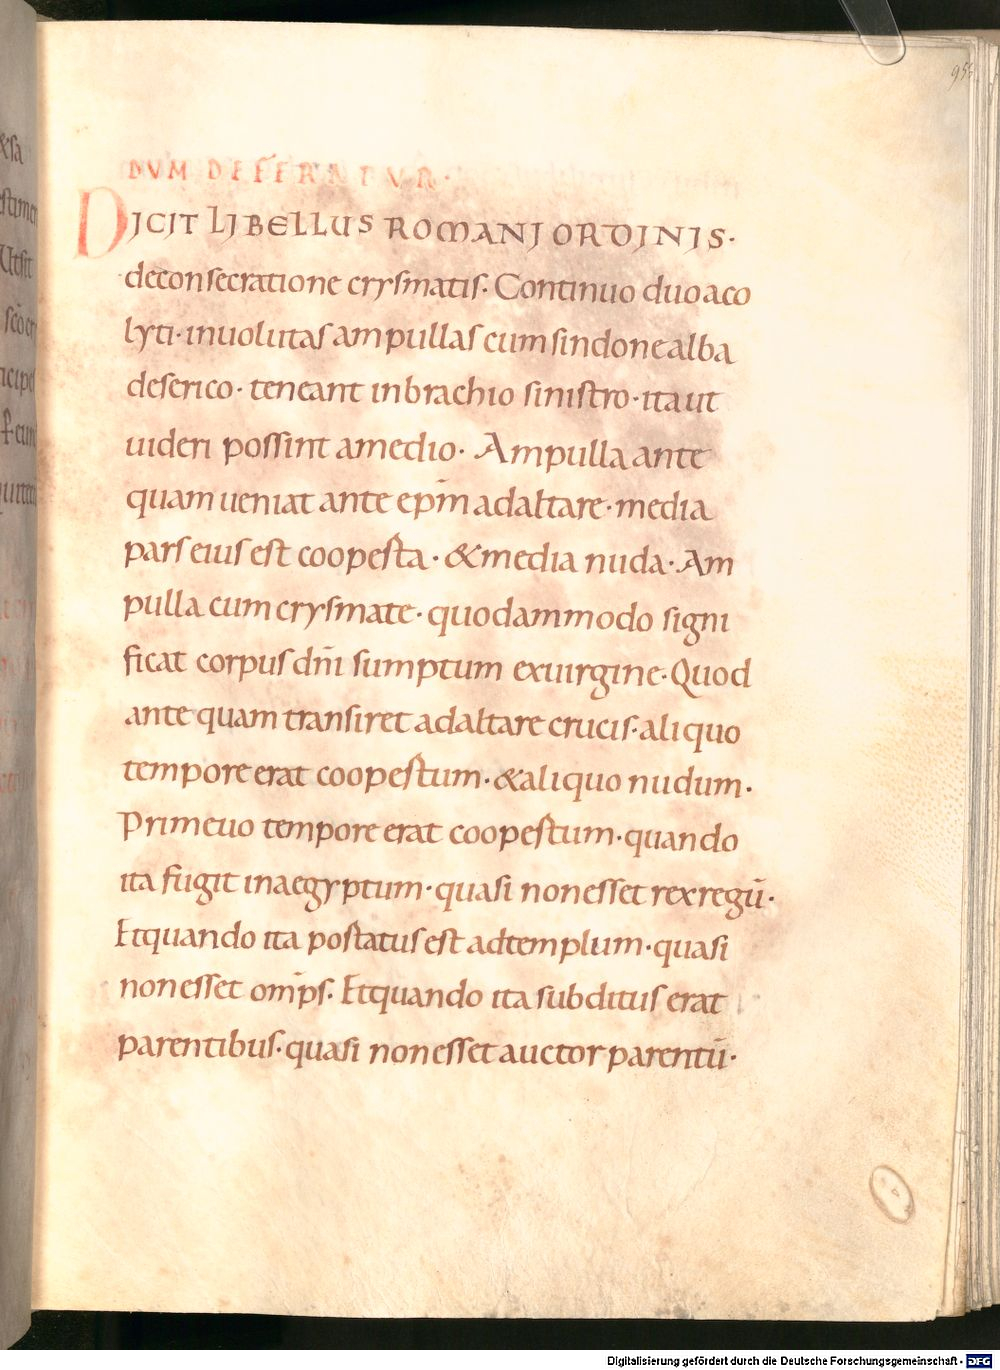 DUM DEFERNTUR·
DICIT LIBELLUS ROMANI ORDINIS·
deconsecratione crysmatis· Continuo duo aco
lyti· inuolutas ampullas cum sindone alba
deserico· teneant inbrachio sinistro· itaut
uideri possint amedio· Ampulla ante
quam ueniat ante ep̄m adaltare· media
pars eius est cooperta· &media nuda· Am
pulla cum crysmate· quodammodo signi
ficat corpus dn̄i sumptum exuirgine· Quod
ante quam transiret adaltare crucis· aliquo
tempore erat coopertum· &aliquo nudum·
Primeuo tempore erat coopertum· quando
ita fugit inaegyptum· quasi nonesset rexregū·
Etquando ita portatus est adtemplum· quasi
nonesset om̄ps· Etquando ita subditus erat
parentibus· quasi nonesset auctor parentū·
95
&sa
Utsit
Digitalisierung gefördert durch die Deutsche Forschungsgemeinschaft - DFG